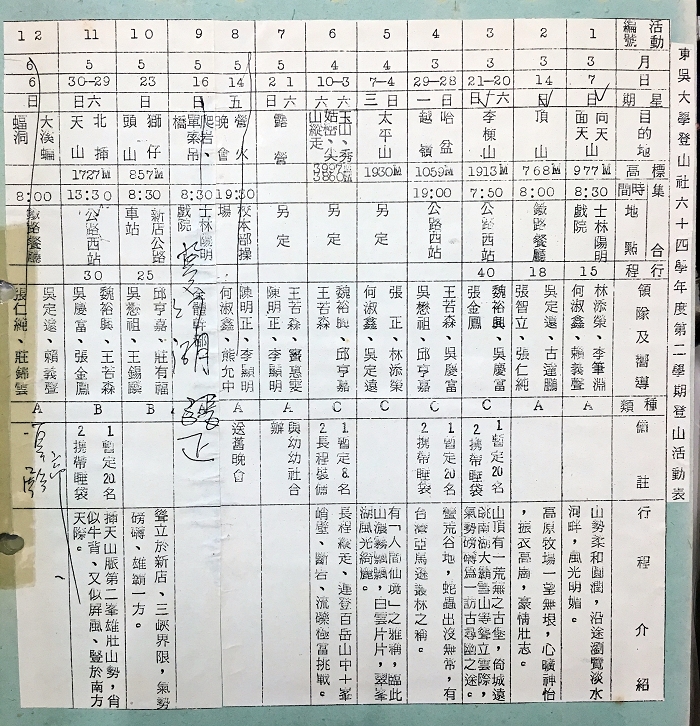 東吳大學登山社六十四學年度第二學期登山活動表
活動編號 月 日 星期 目的地 標高 集合時間 地點 行程 領隊及嚮導 種類 備註 行程介紹
1 3 7 日 面天山、向天山 977M 8:30 士林陽明戲院 15 林添榮、李筆淵 何淑鑫、賴義聲 A 山勢柔和圓潤,沿途瀏覽淡水河畔,風光明媚。
2 3 14 日 頂山 768M 8:00 鐵路餐廳 18 吳定遠、古運鵬 張智立、張仁純 A 高原牧場一望無垠,心曠神怡,振衣高崗,豪情壯志。
3 3 21-20 日六 李棟山 1913M 7:50 公路西站 40 魏裕興、吳慶富 張金鳳 C 1暫定20名 2攜帶睡袋 山頂有一荒無之古堡,倚城遠眺南湖大霸雪山等聳立雲際,氣勢磅礡爲一訪古尋幽之途。
4 3 29-28 一日 哈盆越嶺 1059M 19:00 公路西站 王若森、吳慶富 吳懋祖、邱亨嘉 C 1暫定20名 2攜帶睡袋 蠻荒谷地,蛇蟲出沒無常,有台灣亞馬遜叢林之稱。
5 4 7-4 三日 太平山 1930M 另定 張正、林添榮 何淑鑫、吳定遠 C 有「人間仙境」之雅稱,臨此山濃霧飄飄,白雲片片,翠峯湖風光綺麗。
6 4 10-3 六六 玉山、秀姑巒、尖山縱走 3997M 3860M 另定 魏裕興、邱亨嘉 王若森 C 1暫定8名 2長程裝備 長程縱走、連登百岳山中十峯峭壁、斷岩、流礫極富挑戰。
7 5 2 1 日六 露營 另定 王若森、 陳明正、李顯明 A 與幼幼社合辦
8 5 14 五 營火晚會 19:30 校本部操場 陳明正、李顯明 何淑鑫、熊允中 A 送舊晚會
9 5 16 日 爬岩、單索吊橋 8:30 士林陽明戲院
10 5 23 日 獅仔頭山 857M 8:30 新店公路車站 25 邱亨嘉、莊有福 吳懋祖、王錫麟 B 聳立於新店、三峽界限,氣勢磅礡、雄霸一方。
11 5 30-29 日六 北插天山 1727M 13:30 公路西站 30 魏裕興、王若森 吳慶富、張金鳳 B 1暫定20名 2攜帶睡袋 插天山脈第二峯雄壯山勢,肖似牛背、又似屏風、豎於南方天際。
12 6 6 日 大溪蝙蝠洞 8:00 鐵路餐廳 吳定遠、賴義聲 張仁純、莊錦雲 A